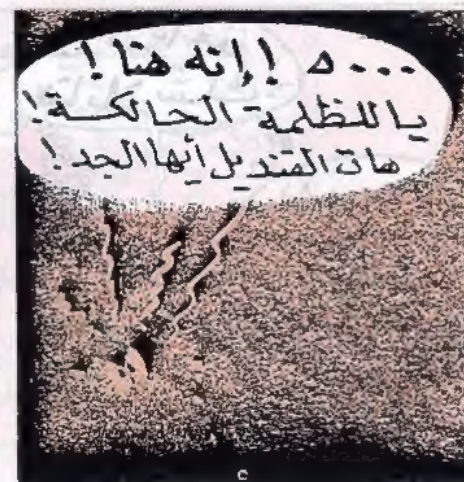 ...ه !إنه هنا !
يا للظلمة الحالكة !
هات القنديل أيها الجد !